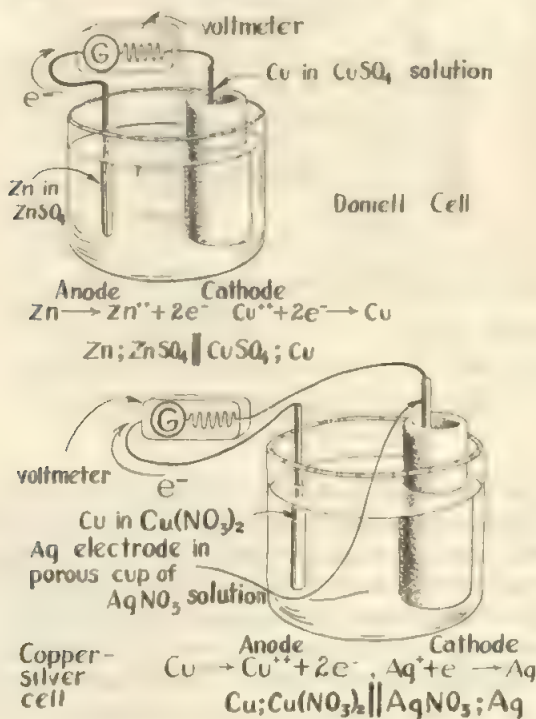 voltmeter
G
Cu in CuSO₄ solution
e⁻
Zn in
ZnSO₄
Daniell Cell
Anode Cathode
Zn → Zn⁺⁺ + 2e⁻ Cu⁺⁺ + 2e⁻ → Cu
Zn; ZnSO₄ || CuSO₄; Cu
G
voltmeter
e⁻
Cu in Cu(NO₃)₂
Ag electrode in
porous cup of
AgNO₃ solution
Anode Cathode
Copper-
silver
cell
Cu → Cu⁺⁺ + 2e⁻, Ag⁺ + e → Ag
Cu; Cu(NO₃)₂ || AgNO₃; Ag